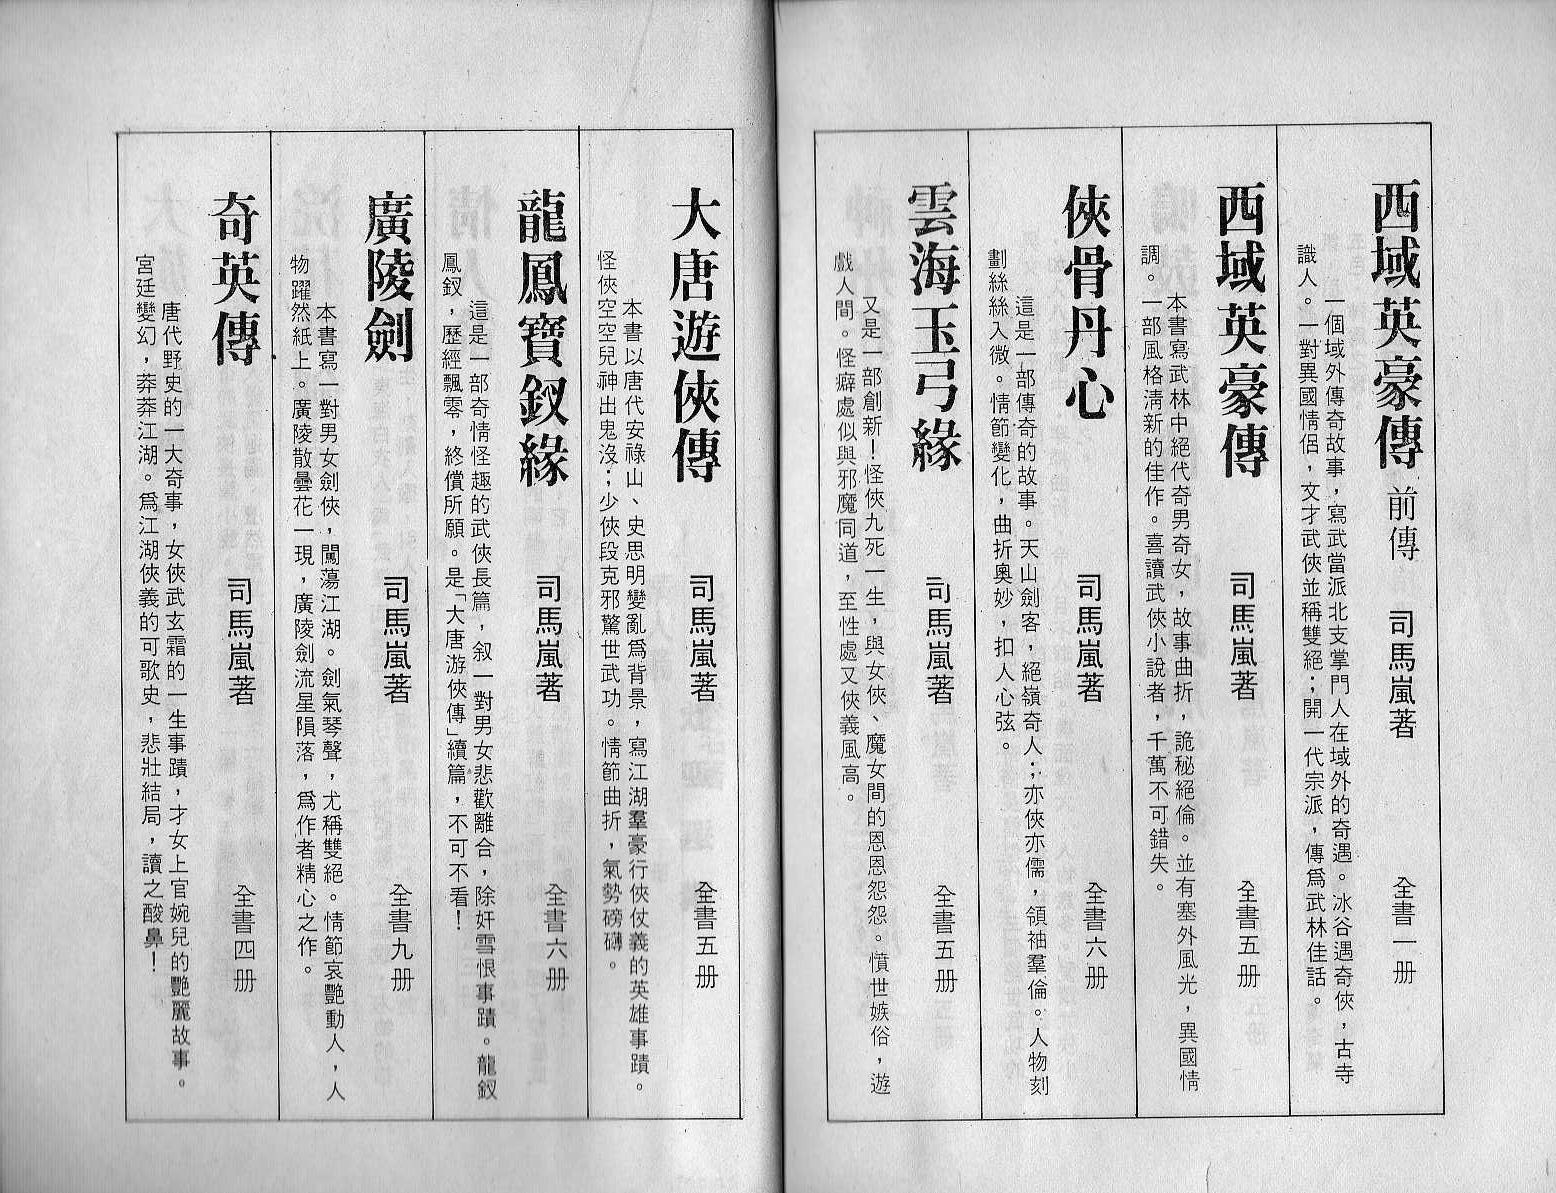 西域英豪傳前傳　司馬嵐著　全書一册
一個域外傳奇故事，寫武當派北支掌門人在域外的奇遇。冰谷遇奇俠，古寺
識人。一對異國情侶，文才武俠並稱雙絕；開一代宗派，傳爲武林佳話。
西域英豪傳　司馬嵐著　全書五册
本書寫武林中絕代奇男奇女，故事曲折，詭秘絕倫。並有塞外風光，異國情
調。一部風格清新的佳作。喜讀武俠小說者，千萬不可錯失。
俠骨丹心　司馬嵐著　全書六册
這是一部傳奇的故事。天山劍客，絕嶺奇人；亦俠亦儒，領袖羣倫。人物刻
劃絲絲入微。情節變化，曲折奧妙，扣人心弦。
雲海玉弓緣　司馬嵐著　全書五册
又是一部創新！怪俠九死一生，與女俠、魔女間的恩恩怨怨。憤世嫉俗，遊
戲人間。怪癖處似與邪魔同道，至性處又俠義風高。
大唐遊俠傳　司馬嵐著　全書五册
本書以唐代安祿山、史思明變亂爲背景，寫江湖羣豪行俠仗義的英雄事蹟。
怪俠空空兒神出鬼沒；少俠段克邪驚世武功。情節曲折，氣勢磅礴。
龍鳳寶釵緣　司馬嵐著　全書六册
這是一部奇情怪趣的武俠長篇，叙一對男女悲歡離合，除奸雪恨事蹟。龍釵
鳳釵，歷經飄零，終償所願。是「大唐游俠傳」續篇，不可不看！
廣陵劍　司馬嵐著　全書九册
本書寫一對男女劍俠，闖蕩江湖。劍氣琴聲，尤稱雙絕。情節哀艷動人，人
物躍然紙上。廣陵散曇花一現，廣陵劍流星隕落，爲作者精心之作。
奇英傳　司馬嵐著　全書四册
唐代野史的一大奇事，女俠武玄霜的一生事蹟，才女上官婉兒的艷麗故事。
宮廷變幻，莽莽江湖。爲江湖俠義的可歌史，悲壯結局，讀之酸鼻！